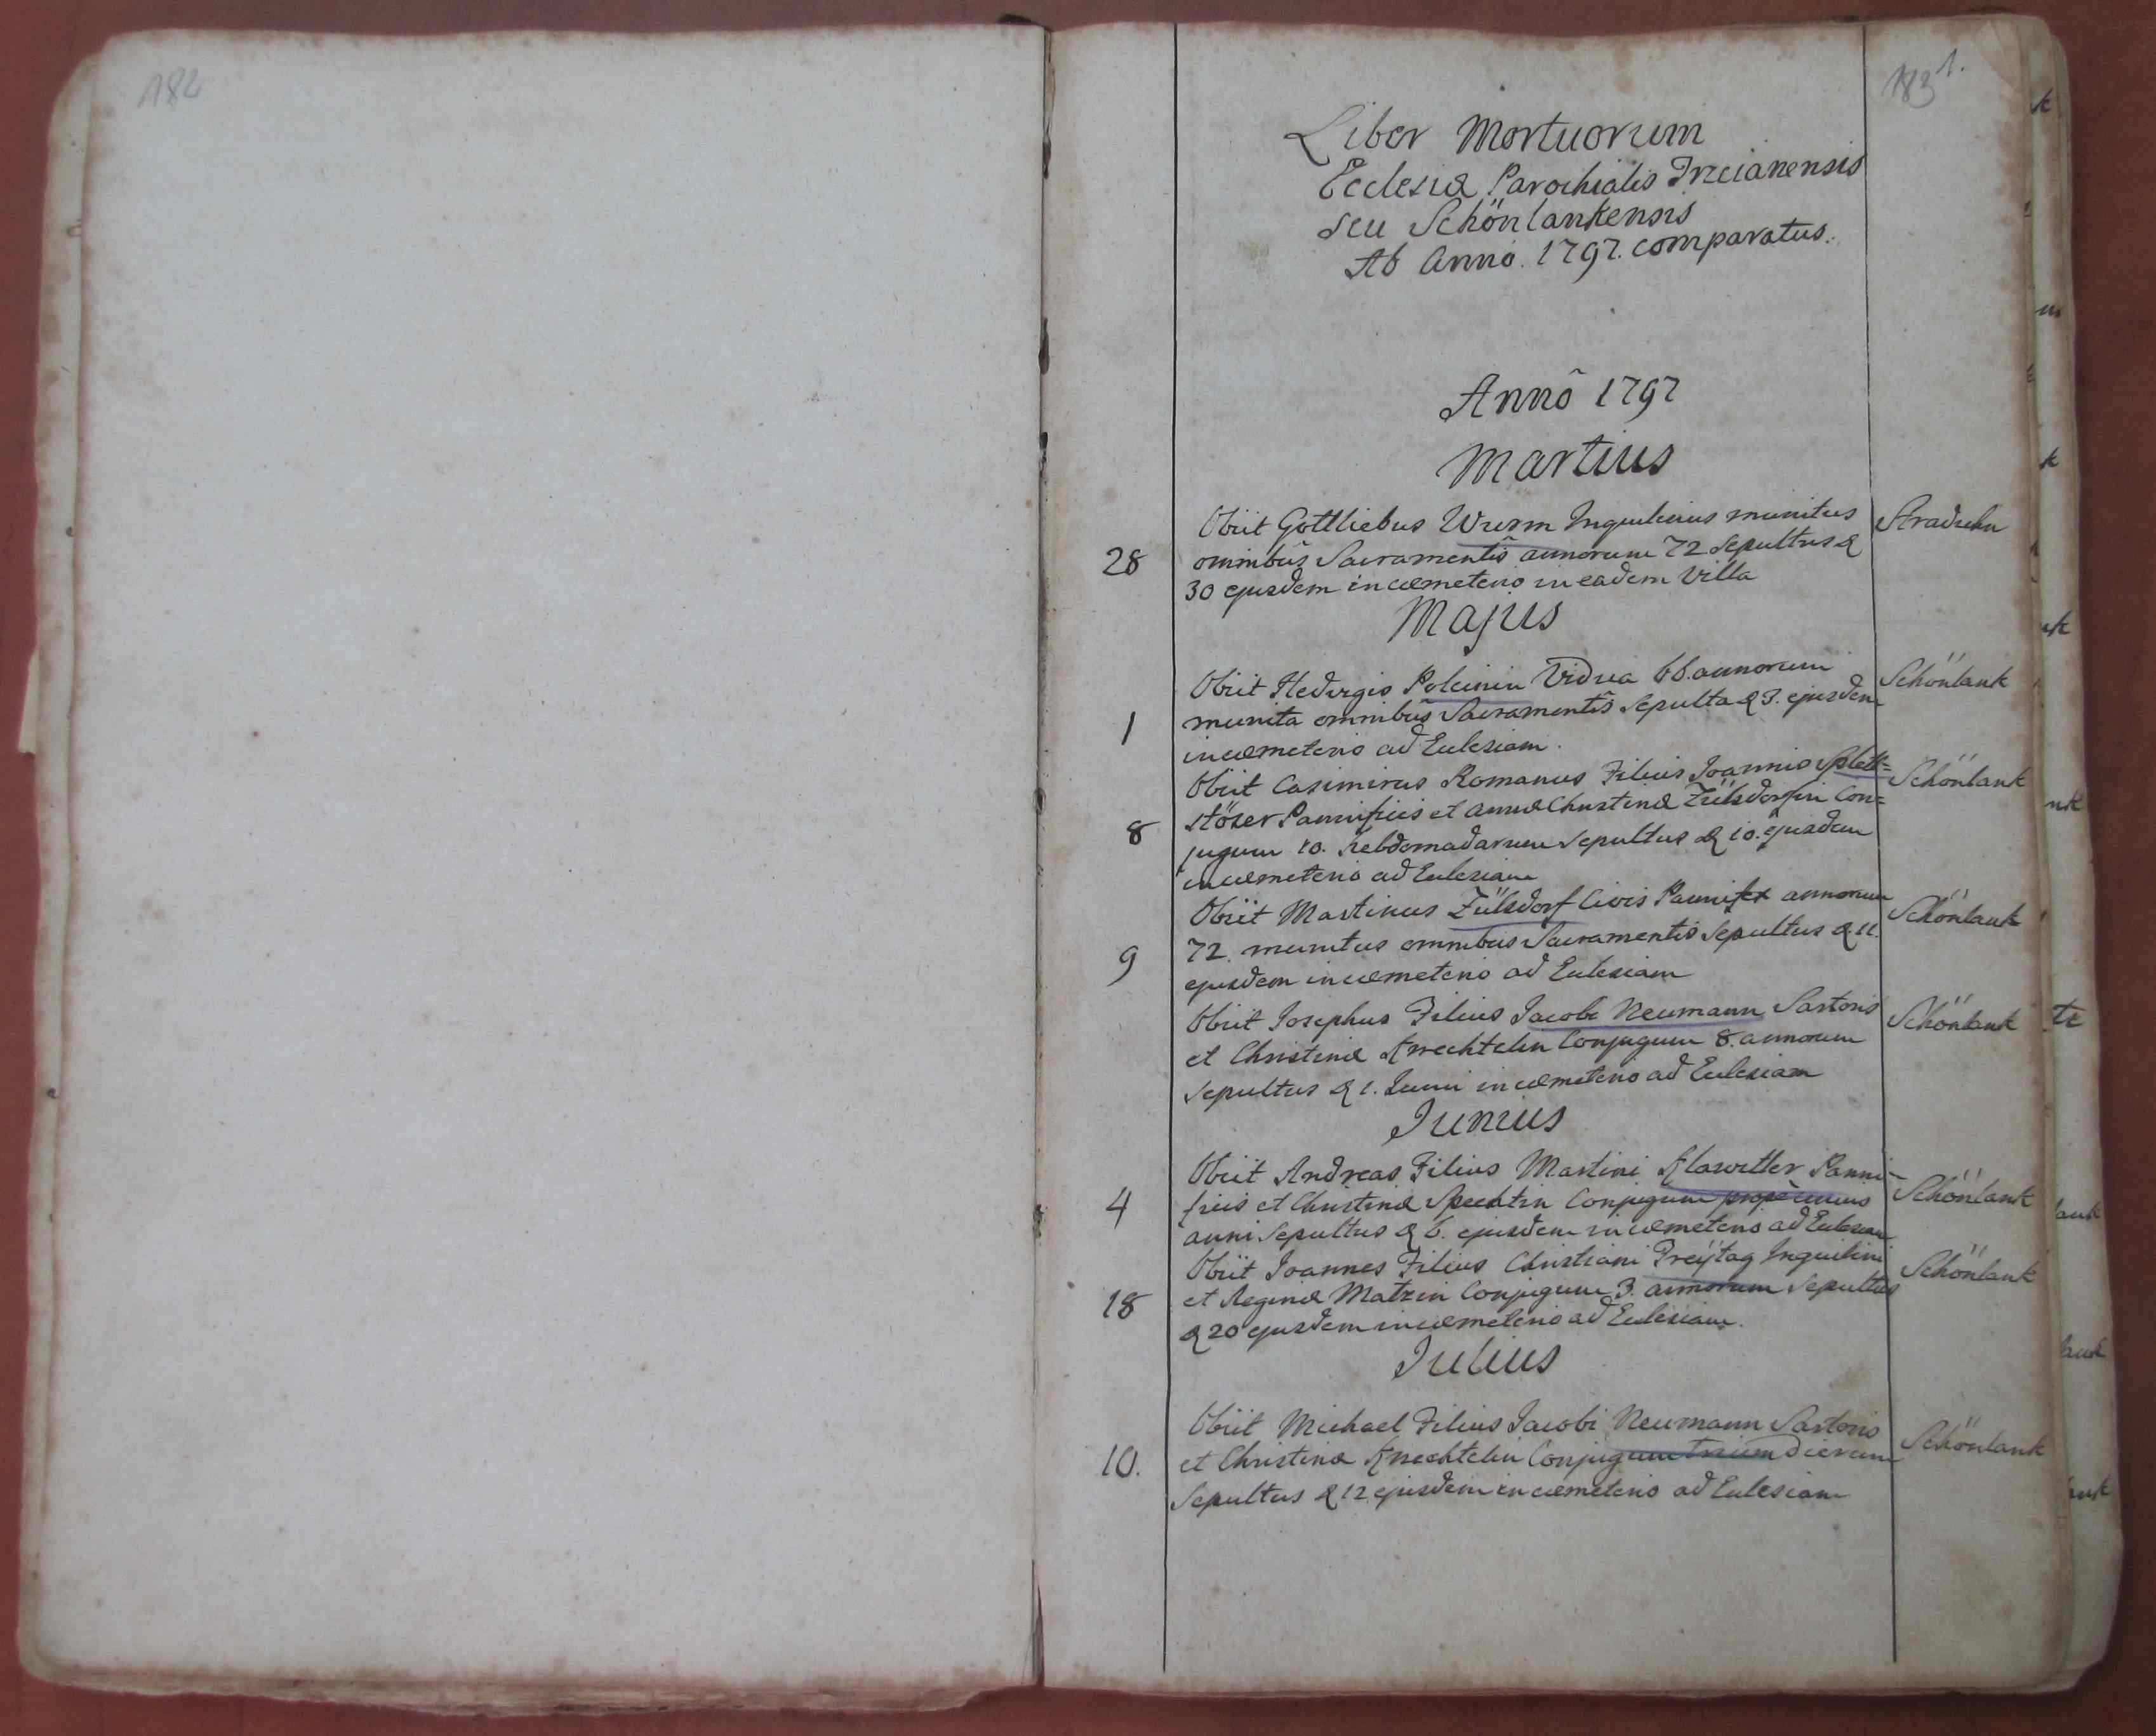 182
183 1.
Liber Mortuorum
Ecclesiæ Parochialis Trzcianensis
seu Schönlankensis
Ab Anno. 1797. comparatus.
Annô 1797
Martius
Obiit Gottliebus Wurm Inquilinus munitus Straduhn
28 omnibus Sacramentis annorum 72 Sepultus &
30 ejusdem in cœmeterio in eadem Villa
Majus
Obiit Hedvigis Polcinin Vidua 66. annorum Schönlank
1 munita omnibus Sacramentis Sepulta & 3. ejusdem
in cœmeterio ad Ecclesiam.
Obiit Casimirus Romanus Filius Joannis Splett= Schönlank
stöser Pannificis et Annæ Christinæ Zülsdorfin Con=
8 jugum 10. hebdomadarum Sepultus & 10. ejusdem
in cœmeterio ad Ecclesiam
Obiit Martinus Zülsdorf Civis Pannifex annorum Schönlank
9 72. munitus omnibus Sacramentis Sepultus & 11.
ejusdem in cœmeterio ad Ecclesiam
Obiit Josephus Filius Jacobi Neumann Sartoris Schönlank
et Christinæ Knechtelin Conjugum 8. annorum
Sepultus & 1. Junii in cœmeterio ad Ecclesiam
Junius
Obiit Andreas Filius Martini Klawitter Panni- Schönlank
4 ficis et Christinæ Spechtin Conjugum prope unius
anni Sepultus & 6. ejusdem in cœmeterio ad Ecclesiam
Obiit Joannes Filius Christiani Freÿtag Inquilini Schönlank
18 et Reginæ Matzin Conjugum 3. annorum Sepultus
& 20 ejusdem in cœmeterio ad Ecclesiam.
Julius
Obiit Michael Filius Jacobi Neumann Sartoris Schönlank
10. et Christinæ Knechtelin Conjugum trium dierum
Sepultus & 12 ejusdem in cœmeterio ad Ecclesiam